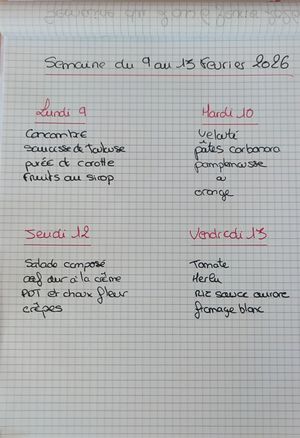 Semaine du 9 au 13 Février 2026
Lundi 9
Concombre
saucisse de Toulouse
purée de carotte
Fruits au sirop
Mardi 10
Velouté
pâtes carbonara
pamplemousse
ou
orange
Jeudi 12
Salade composé
œuf dur à la crème
PDT et choux fleur
crêpes
Vendredi 13
Tomate
Merlu
Riz sauce aurore
fromage blanc